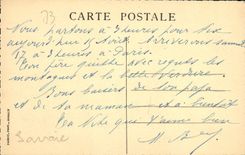 73
CARTE POSTALE
Nous partons à 3 heures pour
aujourd'hui 15 Août. Arriverons samedi
17 à 3 heures à Paris.
Bon Père quitte avec regrets les
montagnes et la belle verdure.
Bons baisers de ton papa
et de ta maman et à bientôt
Ta qui t'aime bien
Savoie